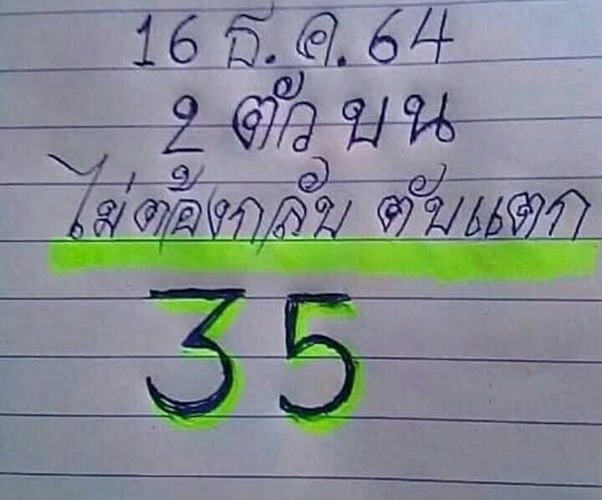 16 ธ.ค.64
2 ตัวบน
ไม่ต้องกลับ ตับแตก
35